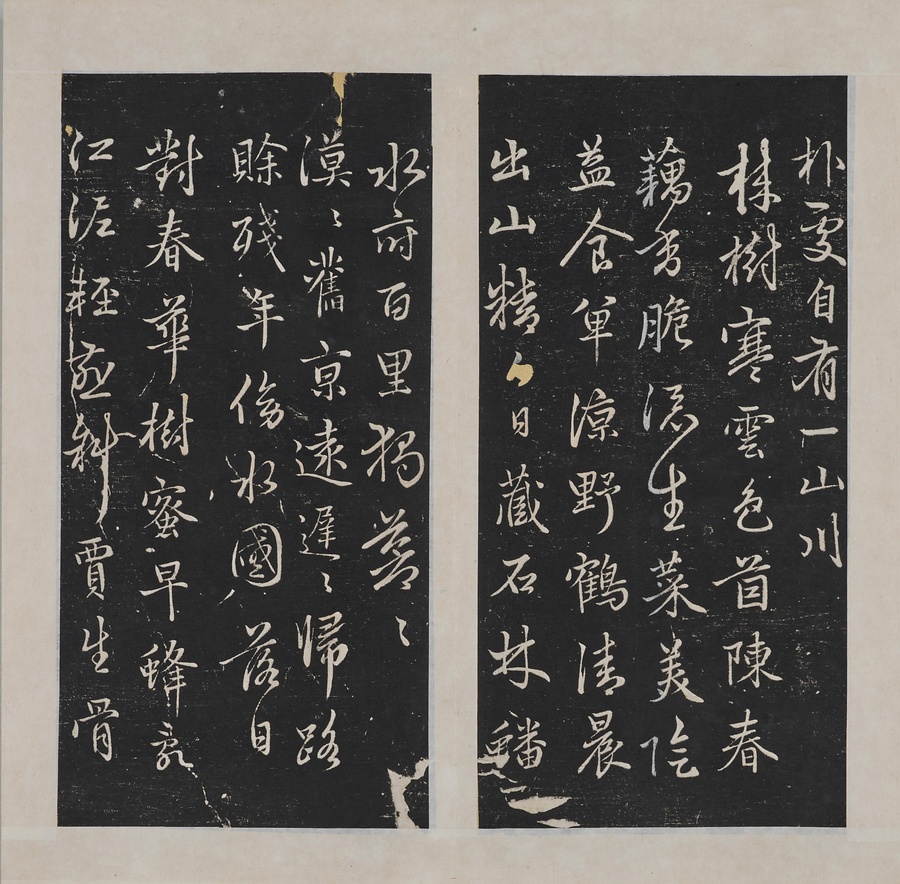 朴處自有一山川
棘樹寒雲色茵陳春
藕香脆添生菜美陰
益食單涼野鶴清晨
出山精白日藏石林蟠
水府百里獨蒼〻
漠〻舊京遠遲〻歸路
賒殘年傍水國落日
對春華樹蜜早蜂亂
江泥輕燕斜賈生骨